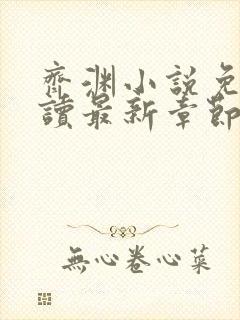 齊淵小說免
讀最新章節
無心卷心菜